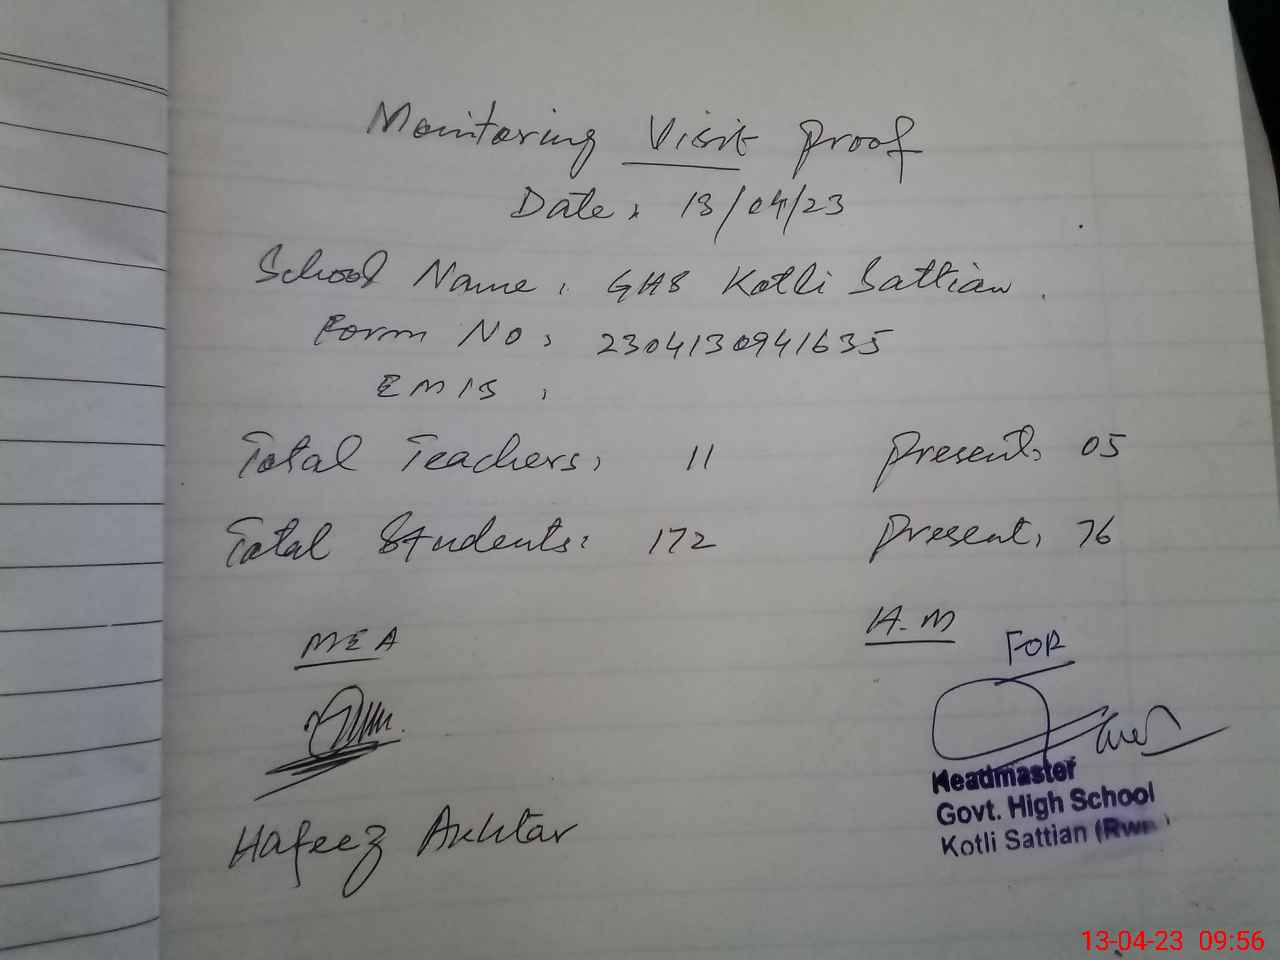 Monitoring Visit Proof
Date: 13/04/23
School Name: GHS Kotli Sattian.
Form No: 2304130941635
EMIS:
Total Teachers: 11 Present: 05
Total Students: 172 Present: 76
MEA H.M
FOR
Hafeez Akhtar
Headmaster
Govt. High School
Kotli Sattian (Rwp)
13-04-23 09:56